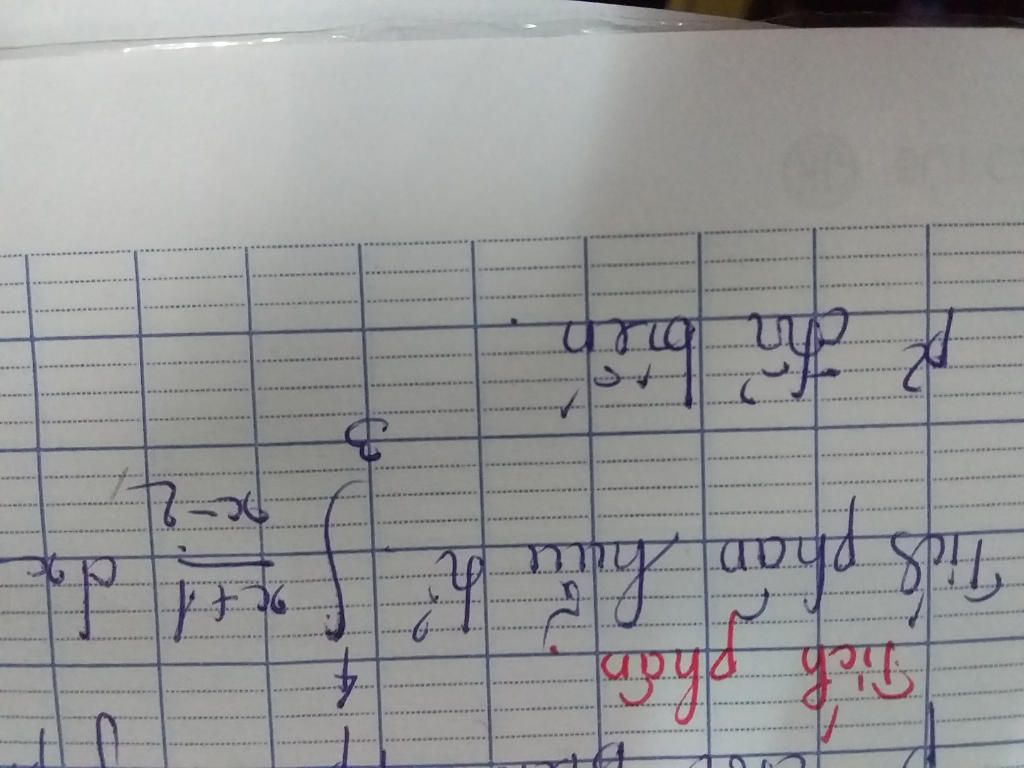 Tích phân
Tích phân hữu tỉ ∫₃⁴ (x+1)/(x-2) dx
p² đổi biến